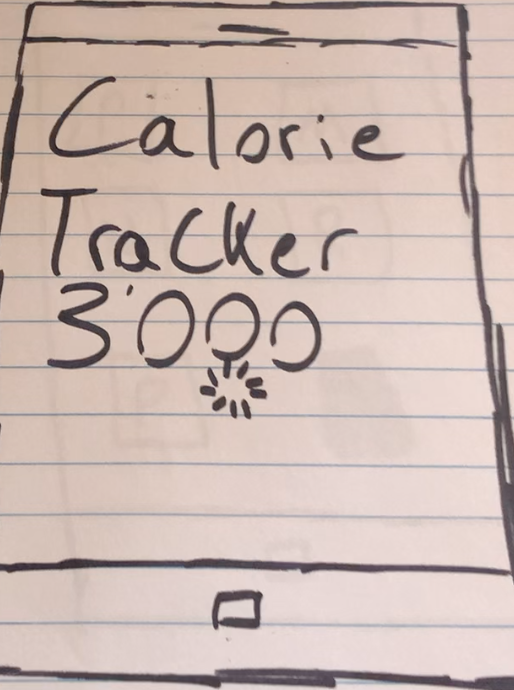 Calorie
Tracker
3'000